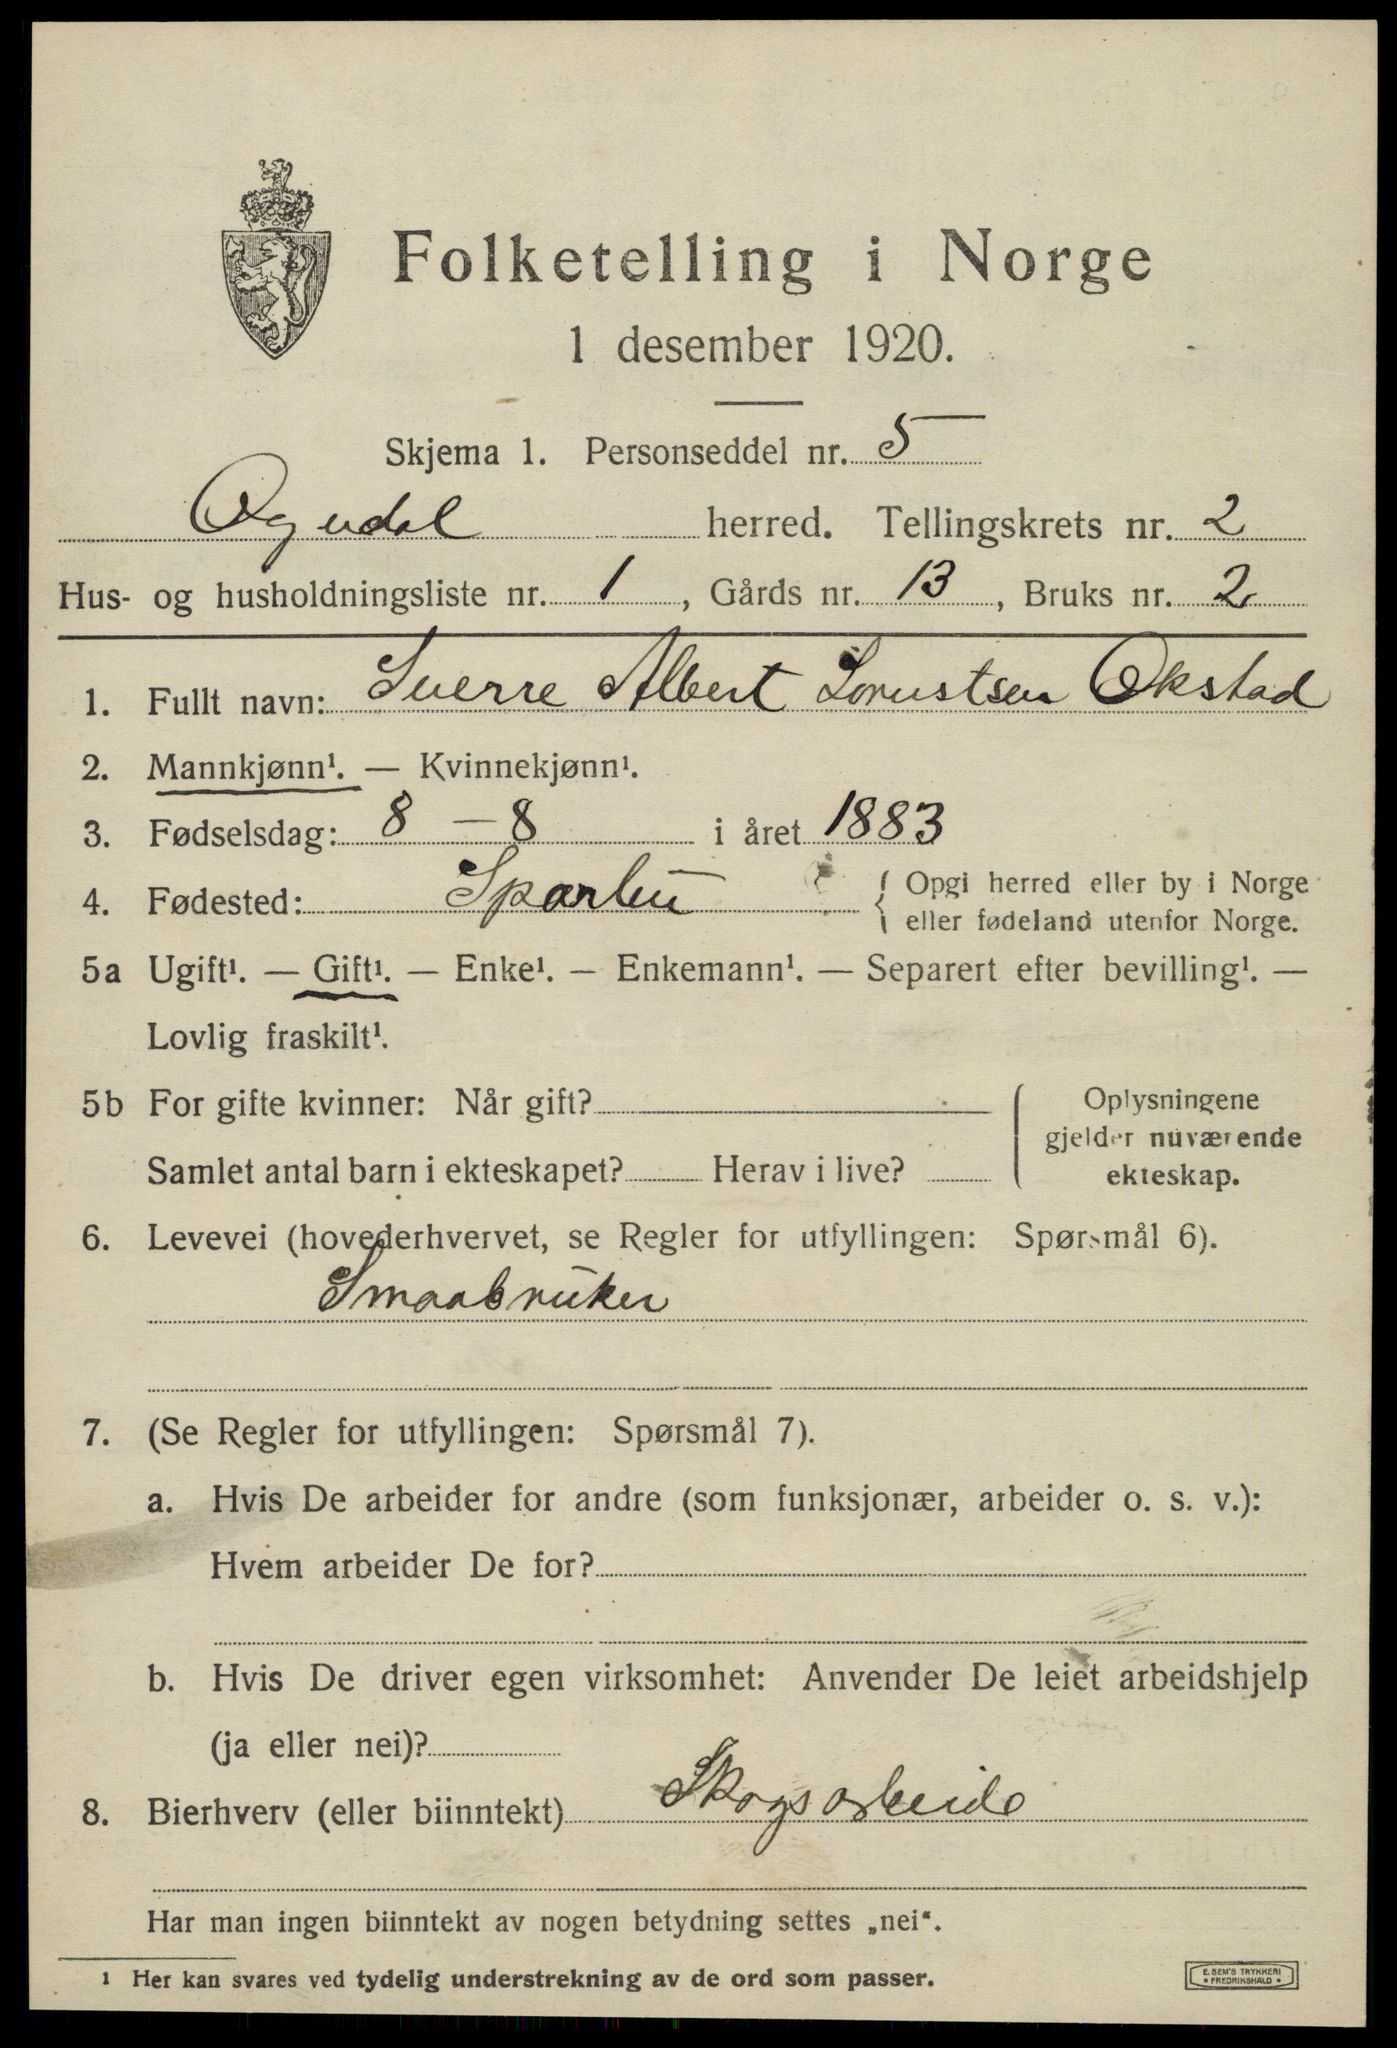 Folketelling i Norge
1 desember 1920.
Skjema 1. Personseddel nr. 5
Ogndal herred. Tellingskrets nr. 2
Hus- og husholdningsliste nr. 1, Gårds nr. 13, Bruks nr. 2
1. Fullt navn: Sverre Albert Lorentsen Okstad
2. Mannkjønn¹. — Kvinnekjønn¹.
3. Fødselsdag: 8 – 8 i året 1883
4. Fødested: Sparbu { Opgi herred eller by i Norge
eller fødeland utenfor Norge.
5a Ugift¹. — Gift¹. — Enke¹. — Enkemann¹. — Separert efter bevilling¹. —
Lovlig fraskilt¹.
5b For gifte kvinner: Når gift?
Samlet antal barn i ekteskapet? Herav i live?
Oplysningene
gjelder nuværende
ekteskap.
6. Levevei (hovederhvervet, se Regler for utfyllingen: Spørsmål 6).
Smaabruker
7. (Se Regler for utfyllingen: Spørsmål 7).
a. Hvis De arbeider for andre (som funksjonær, arbeider o. s. v.):
Hvem arbeider De for?
b. Hvis De driver egen virksomhet: Anvender De leiet arbeidshjelp
(ja eller nei)?
8. Bierhverv (eller biinntekt) Skogsarbeide
Har man ingen biinntekt av nogen betydning settes „nei“.
1 Her kan svares ved tydelig understrekning av de ord som passer.
E. SEM'S TRYKKERI
• FREDRIKSHALD •